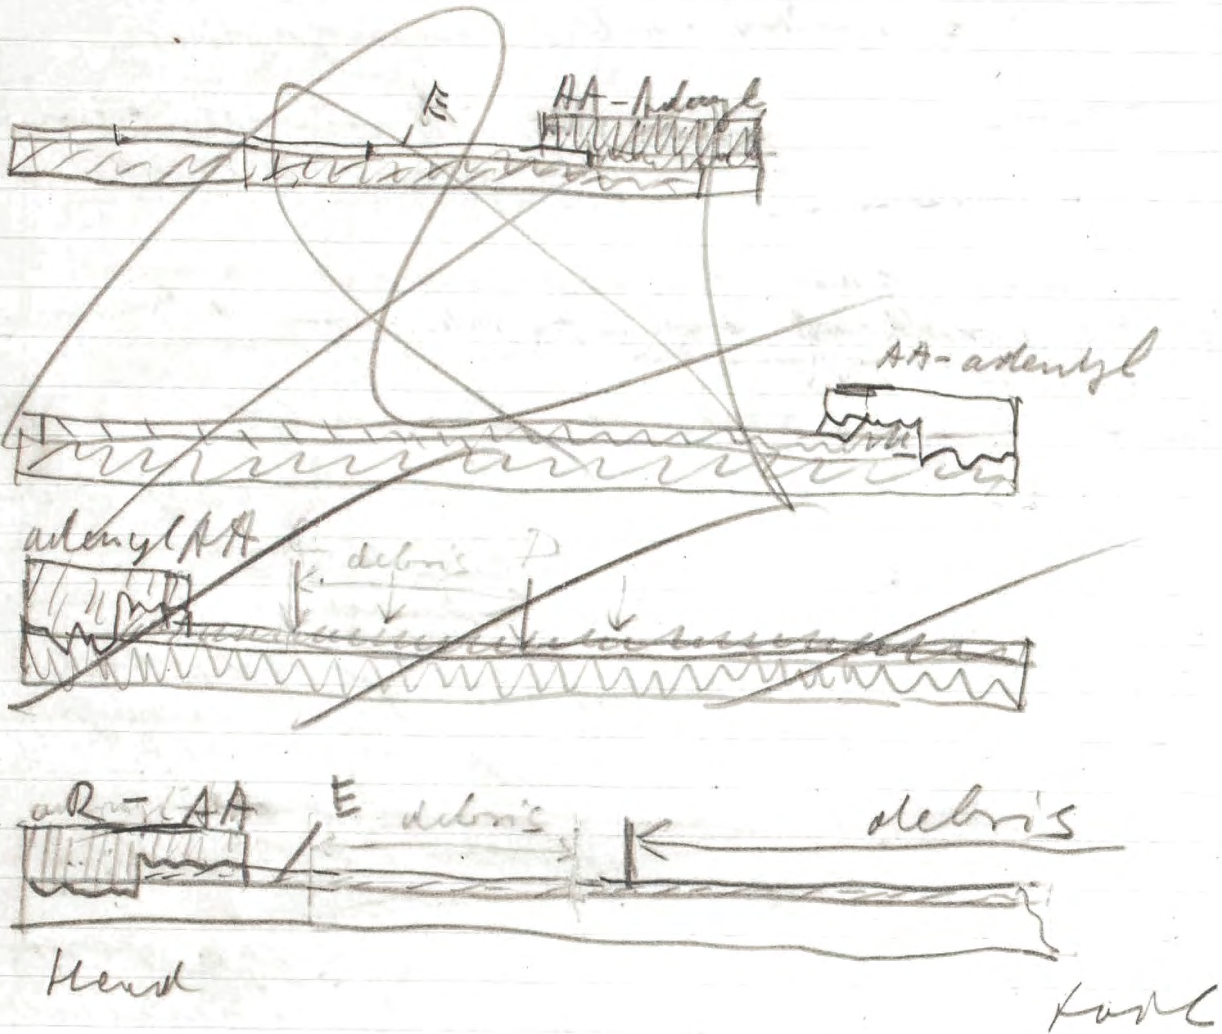 E AA-Adenyl
AA-adenyl
adenyl AA debris
R-AA E debris debris
Head Tail